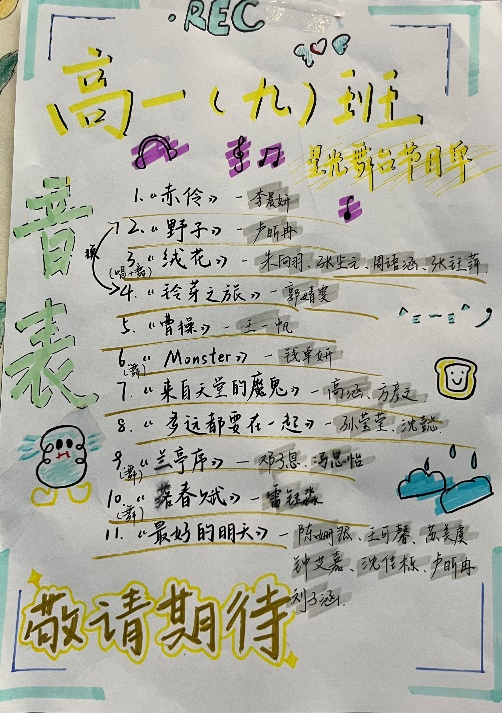 ·REC
高一（九）班
星光舞台节目单
音表
1.《赤伶》-李晨妍
2.《野子》-卢昕冉
3.《绒花》-朱同羽、张
(唱+舞)
4.《铃芽之旅》-郭婧雯
5.《曹操》-王一帆
6.《Monster》-钱卓妍
(舞)
7.《来自天堂的魔鬼》-高涵、方彦文
8.《多远都要在一起》-孙莹莹、沈懿
9.《兰亭序》-邓子恩、冯思怡
(舞)
10.《春赋》-雷
(舞)
11.《最好的明天》-陈姗、王可馨、苏美虞
钟艾嘉、沈佳栎、卢昕冉
刘子涵.
敬请期待